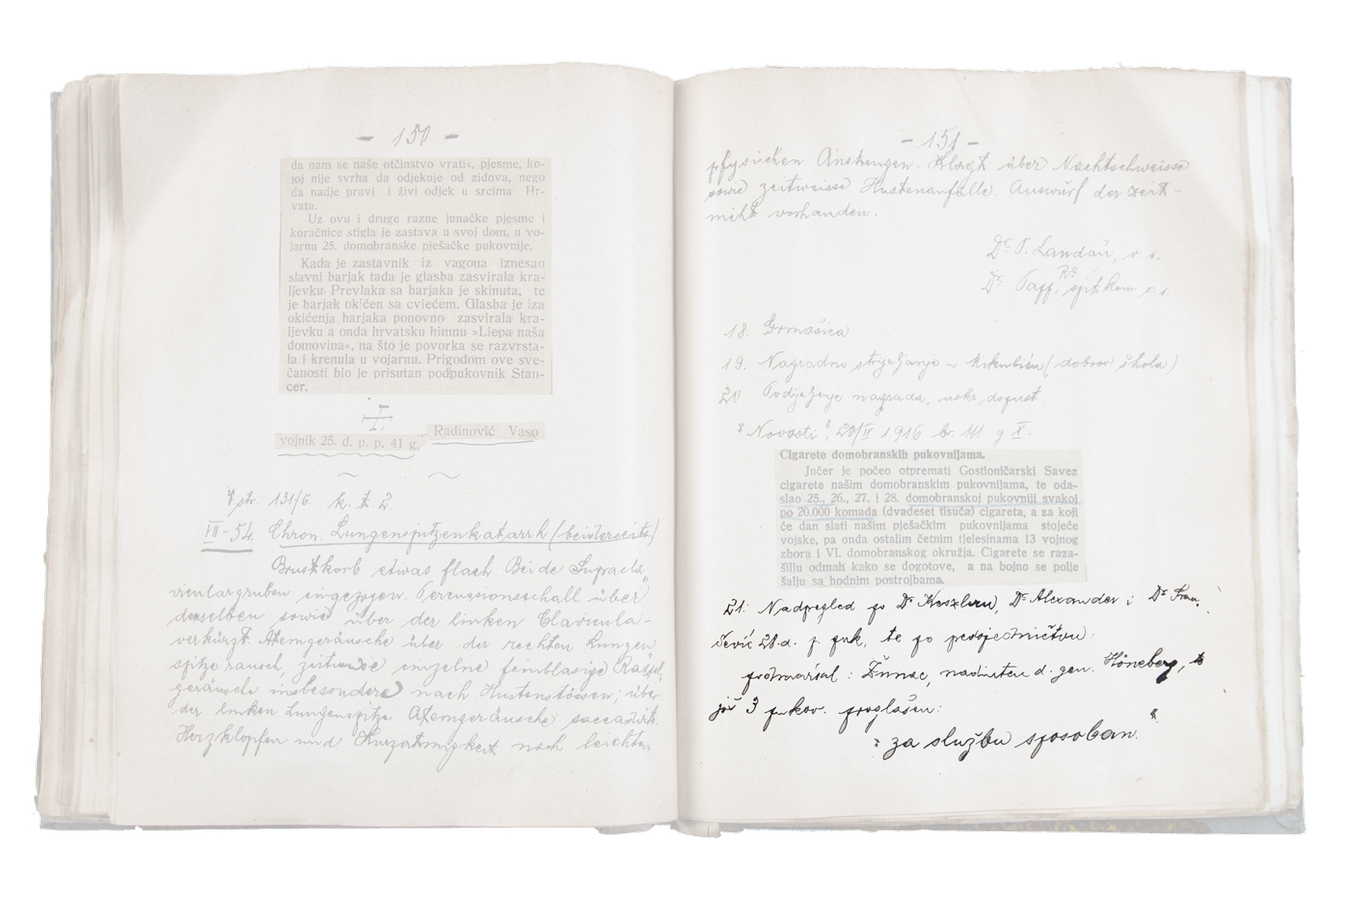 - 150 -
da nam se naše otčinstvo vrati«, pjesme, ko-
joj nije svrha da odjekuje od zidova, nego
da nadje pravi i živi odjek u srcima Hr-
vata.
Uz ovu i druge razne junačke pjesme i
koračnice stigla je zastava u svoj dom, u vo-
jarnu 25. domobranske pješačke pukovnije.
Kada je zastavnik iz vagona iznesao
slavni barjak tada je glasba zasvirala kra-
ljevku. Prevlaka sa barjaka je skinuta, te
je barjak okićen sa cviećem. Glasba je iza
okićenja barjaka ponovno zasvirala kra-
ljevku a onda hrvatsku himnu »Liepa naša
domovina«, na što je povorka se razvrsta-
la i krenula u vojarnu. Prigodom ove sve-
čanosti bio je prisutan podpukovnik Stan-
cer.
vojnik 25. d. p. p. 41 g. Radinović Vaso
str. 131/6. k. t. 2.
VII-54. Chron. Lungenspitzenkatarrh (beiderseits)
Brustkorb etwas flach. Beide Supracla-
viculargruben eingezogen. Percussionsschall über
denselben sowie über der linken Clavicula-
verkürzt. Atemgeräusche über der rechten Lungen
spitze rausch, zeitweise einzelne feinblasige Rassel-
geräusche insbesondere nach Hustenstössen; über
der linken Lungenspitze Atemgeräusche saccadirt.
Herzklopfen und Kurzatmigkeit nach leichten
- 151 -
physischen Anstrengen. Klagt über Nachtschweisse
sowie zeitweisse Hustenanfälle. Auswurf derzeit-
nicht vorhanden.
Dr. T. Landau,
Dr. Paff,
18. Grmošćica
19. Nagradno streljanje
20. Podjeljenje nagrada, uskr. dopust.
"Novosti", 20/IV 1916 br. 111 g X.
Cigarete domobranskih pukovnijama.
Jučer je počeo otpremati Gostioničarski Savez
cigarete našim domobranskim pukovnijama, te oda-
slao 25., 26., 27. i 28. domobranskoj pukovniji svakoj
po 20.000 komada (dvadeset tisuća) cigareta, a za koji
će dan slati našim pješačkim pukovnijama stojeće
vojske, pa onda ostalim četnim tjelesinama 13 vojnog
zbora i VI. domobranskog okružja. Cigarete se raza-
šilju odmah kako se dogotove, a na bojno se polje
šalju sa hodnim postrojbama.
21. Nadpregled po Dr Koszleru, Dr Alexander i Dr Fran-
čević 28.d. p. puk, te po predsjedničtvu:
podmaršal: Žunac, nadintend. gen. Höneberg, te
još 3 pukov. proglašen:
"za službu sposoban."